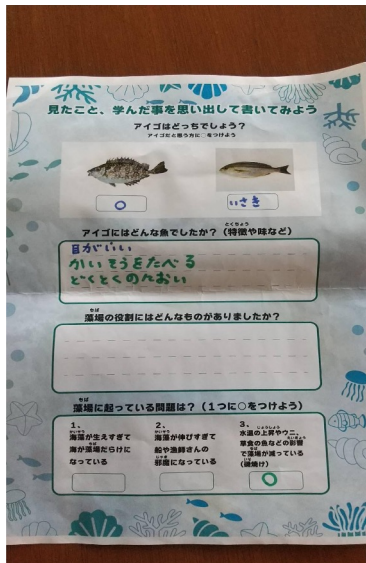 見たこと、学んだ事を思い出して書いてみよう
アイゴはどっちでしょう?
アイゴだと思う方に○をつけよう
○
いさき
アイゴにはどんな魚でしたか?(特徴や味など)
とくちょう
目がいい
かいそうをたべる
どくとくのにおい
もば
藻場の役割にはどんなものがありましたか?
もば
藻場に起っている問題は?(1つに○をつけよう)
1、
かいそう
海藻が生えすぎて
もば
海が藻場だらけに
なっている
2、
かいそう
海藻が伸びすぎて
船や漁師さんの
じゃま
邪魔になっている
3、
じょうしょう
水温の上昇やウニ、
えいきょう
草食の魚などの影響
で藻場が減っている
(磯焼け)
○